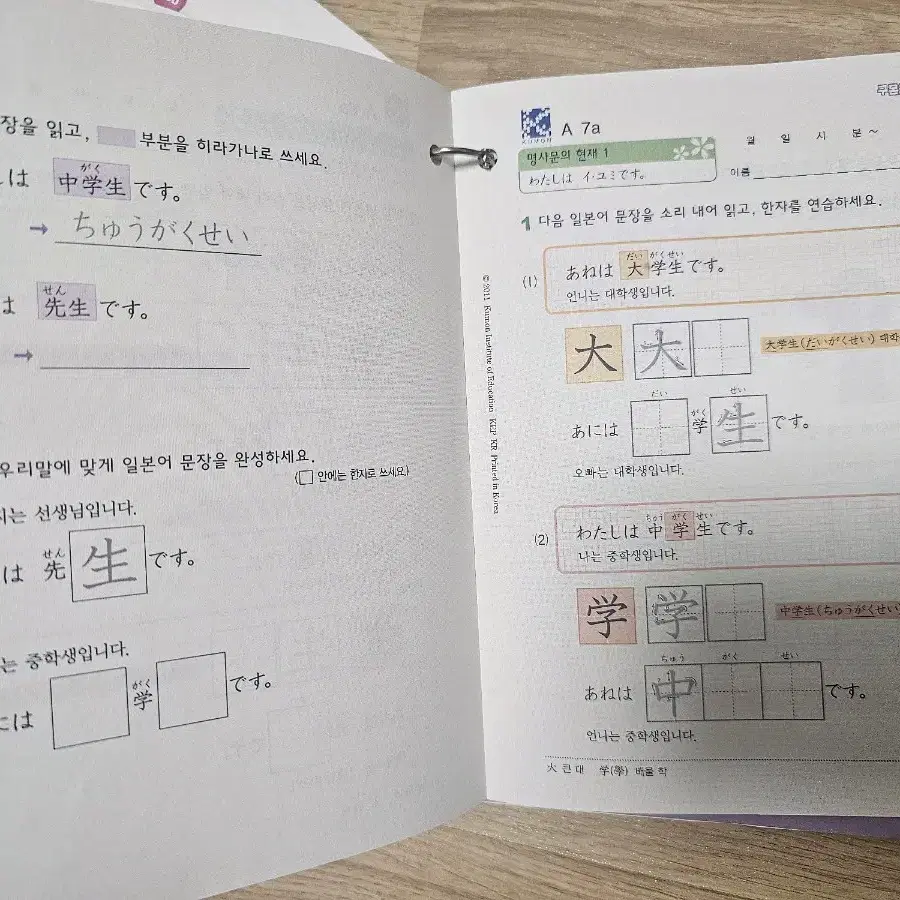 장을 읽고, 부분을 히라가나로 쓰세요.
がく
は 中学生です。
→ ちゅうがくせい
せん
は 先生です。
→
우리말에 맞게 일본어 문장을 완성하세요.
(□ 안에는 한자로 쓰세요)
는 선생님입니다.
せん
は 先生です。
는 중학생입니다.
がく
には 学 です。
© 2011 Kumon Institute of Education KEP KR Printed in Korea
KUMON
A 7a
월 일 시 분~
명사문의 현재 1
わたしは イ・ユミです。
이름
1 다음 일본어 문장을 소리 내어 읽고, 한자를 연습하세요.
(1)
だい がくせい
あねは 大学生です。
언니는 대학생입니다.
大 大
大学生(だいがくせい) 대학
だい がく せい
あには 学生です。
오빠는 대학생입니다.
(2)
ちゅう がく せい
わたしは 中学生です。
나는 중학생입니다.
学 学
中学生(ちゅうがくせい)
ちゅう がく せい
あねは 中 です。
언니는 중학생입니다.
大 큰 대 学(學) 배울 학